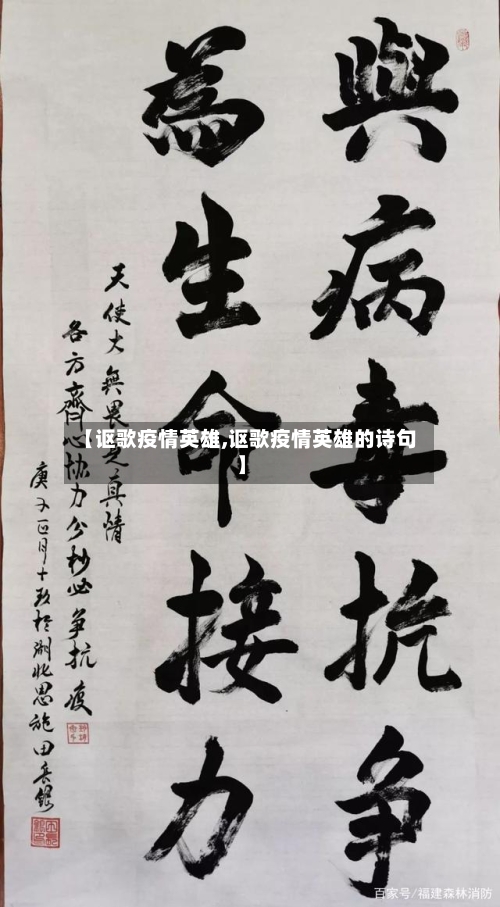 與病毒抗争
為生命接力
天使大無畏之真情
各方齊心协力分秒必争抗疫
庚子正月十玖於湖北恩施田
【讴歌疫情英雄,讴歌疫情英雄的诗句
】
百家号/福建森林消防